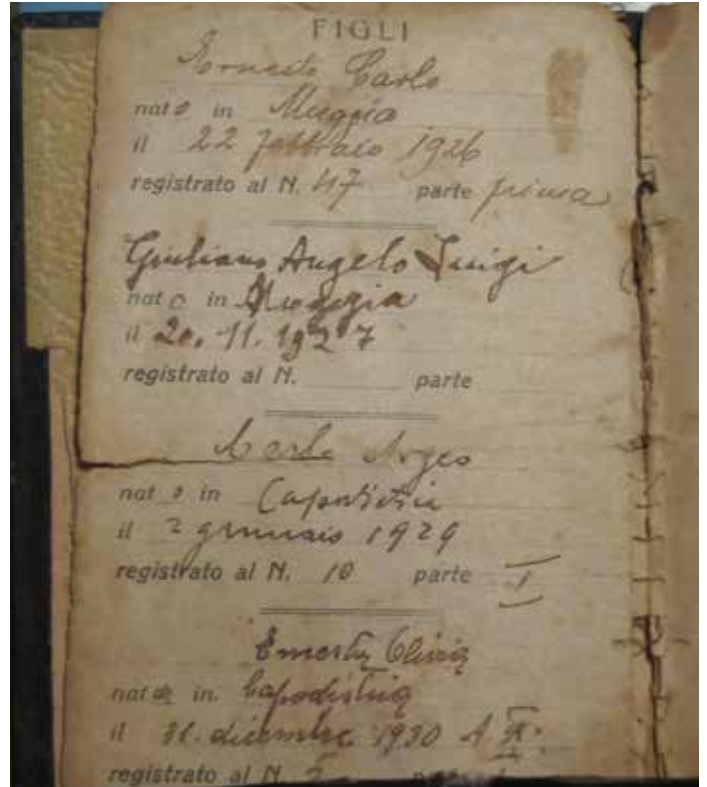 FIGLI
Ernesto Carlo
nato in Muggia
il 22 febbraio 1926
registrato al N. 47 parte prima
Giuliano Angelo Luigi
nato in Muggia
il 20.11.1927
registrato al N. parte
Carlo Argeo
nato in Capodistria
il 2 gennaio 1929
registrato al N. 10 parte I
Ernesta Olivia
nata in Capodistria
il 11. dicembre 1930 A. IX.
registrato al N. 5